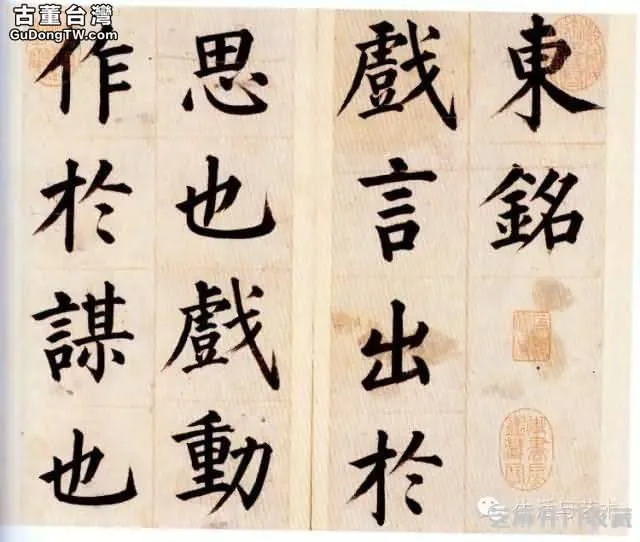 古董台灣
GuDongTW.com
東銘
戲言出於
思也戲動
作於謀也